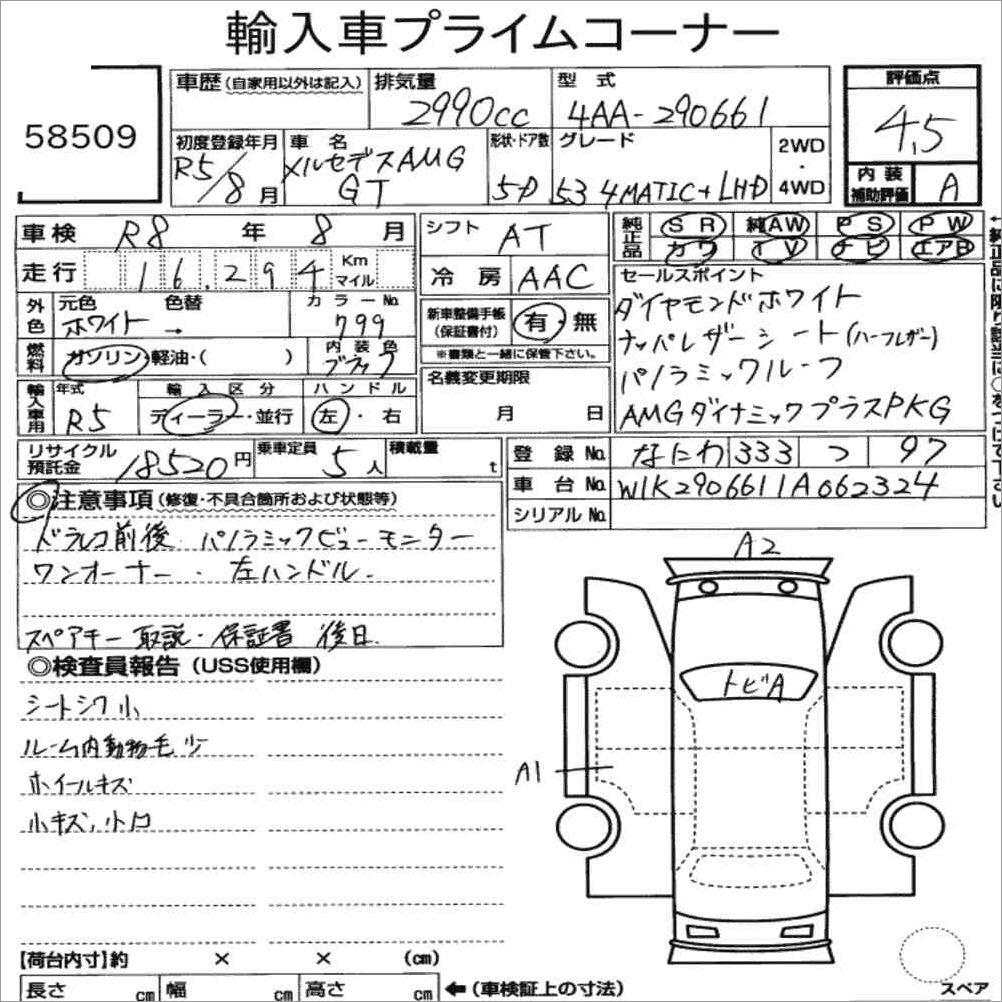 輸入車プライムコーナー
58509
車歴(自家用以外は記入)
排気量
2990cc
型式
4AA-290661
評価点
4.5
初度登録年月
R5/8月
車名
メルセデスAMG
GT
形状・ドア数
5D
グレード
53 4MATIC+ LHD
2WD
・
4WD
内装
補助評価
A
車検 R8年 8月
走行 16.294 Km マイル
外色
元色
ホワイト
色替
→
カラーNo.
799
燃料
ガソリン・軽油・( )
内装色
ブラック
輸入車用
年式
R5
輸入区分
ディーラー・並行
ハンドル
左・右
シフト AT
冷房 AAC
新車整備手帳
(保証書付)
有・無
※書類と一緒に保管下さい。
名義変更期限
月 日
純正品
SR 純AW PS PW
カワ TV ナビ エアB
セールスポイント
ダイヤモンドホワイト
ナッパレザーシート(ハーフレザー)
パノラミックルーフ
AMGダイナミックプラスPKG
リサイクル
預託金
18520円
乗車定員
5人
積載量
t
登録No. なにわ 333 つ 97
車台No. W1K2906611A062324
シリアルNo.
◎注意事項(修復・不具合箇所および状態等)
ドラレコ前後 パノラミックビューモニター
ワンオーナー・左ハンドル.
スペアキー 取説・保証書 後日
◎検査員報告(USS使用欄)
シートシワ小
ルーム内動物毛少
ホイールキズ
小キズ,小凹
A2
トビA
A1
【荷台内寸】約 × × (cm)
長さ cm 幅 cm 高さ cm
←(車検証上の寸法)
スペア